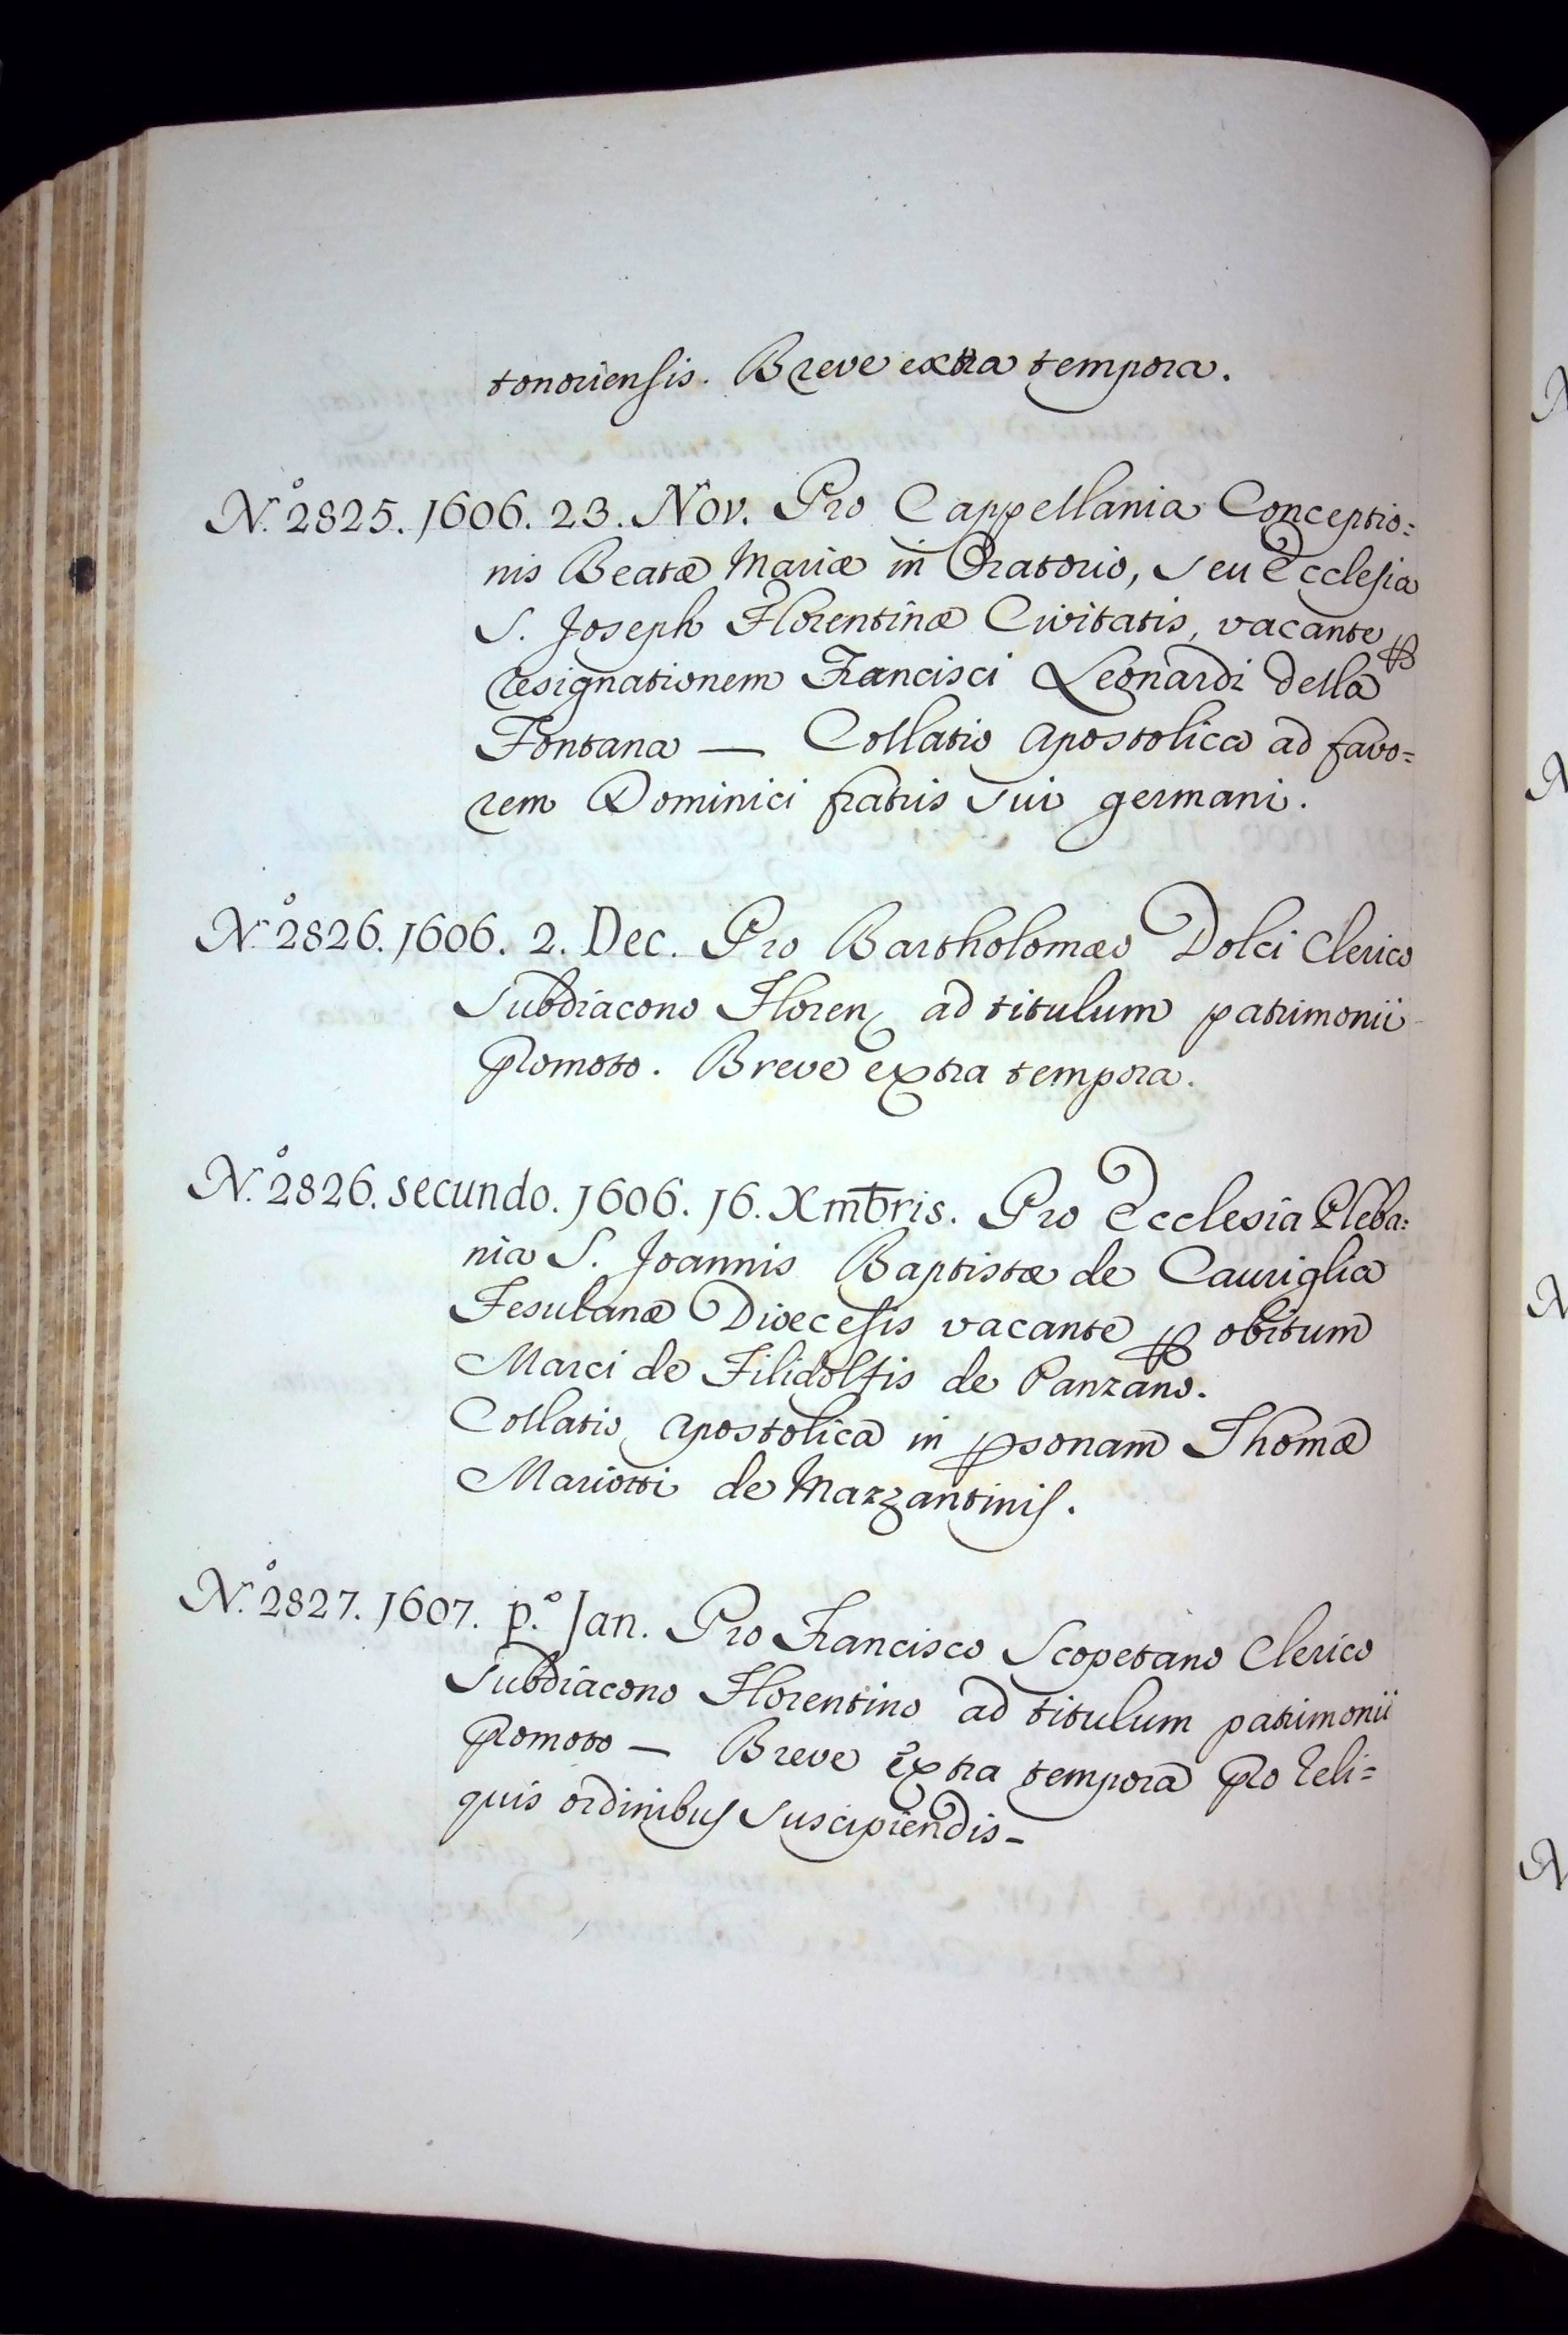 tonoriensis. Breve extra tempora.
N.º 2825. 1606. 23. Nov. Pro Cappellania Conceptio=
nis Beatæ Mariæ in Oratorio, seu Ecclesia
S. Joseph Florentinæ Civitatis, vacante ꝑ
resignationem Francisci Leonardi della
Fontana — Collatio Apostolica ad favo=
rem Dominici fratris sui germani.
N.º 2826. 1606. 2. Dec. Pro Bartholomæo Dolci Clerico
Subdiacono Floren. ad titulum patrimonii
promoto. Breve extra tempora.
N.º 2826. secundo. 1606. 16. Xmbris. Pro Ecclesia Pleba=
nia S. Joannis Baptistæ de Cauriglia
Fesulanæ Diœcesis vacante ꝑ obitum
Marci de Filidolfis de Panzano.
Collatio Apostolica in ꝑsonam Thomæ
Mariotti de Mazzantinis.
N.º 2827. 1607. p.º Jan. Pro Francisco Scopetano Clerico
Subdiacono Florentino ad titulum patrimonii
promoto — Breve extra tempora pro reli=
quis ordinibus suscipiendis –